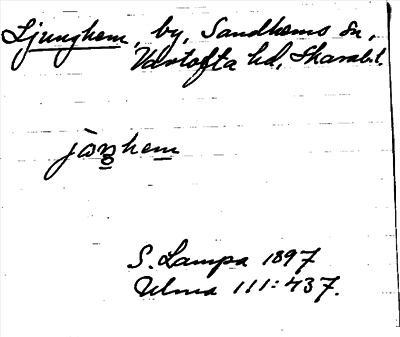 Ljunghem, by, Sandhems sn,
Vartofta hd, Skarab.l.
jòŋhem
S. Lampa 1897
Ulma 111:437.